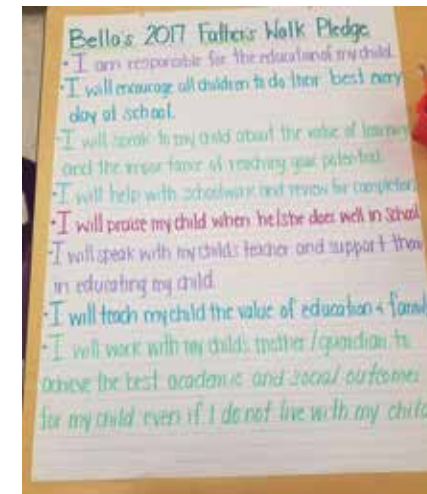 Bella's 2017 Father's Walk Pledge
• I am responsible for the education of my child.
• I will encourage all children to do their best every
day at school.
• I will speak to my child about the value of learning
and the importance of reaching your potential.
• I will help with schoolwork and review for completion
• I will praise my child when he/she does well in School
• I will speak with my child's teacher and support them
in educating my child.
• I will teach my child the value of education & family
• I will work with my child's mother/guardian to
achieve the best academic and social outcomes
for my child even if I do not live with my child